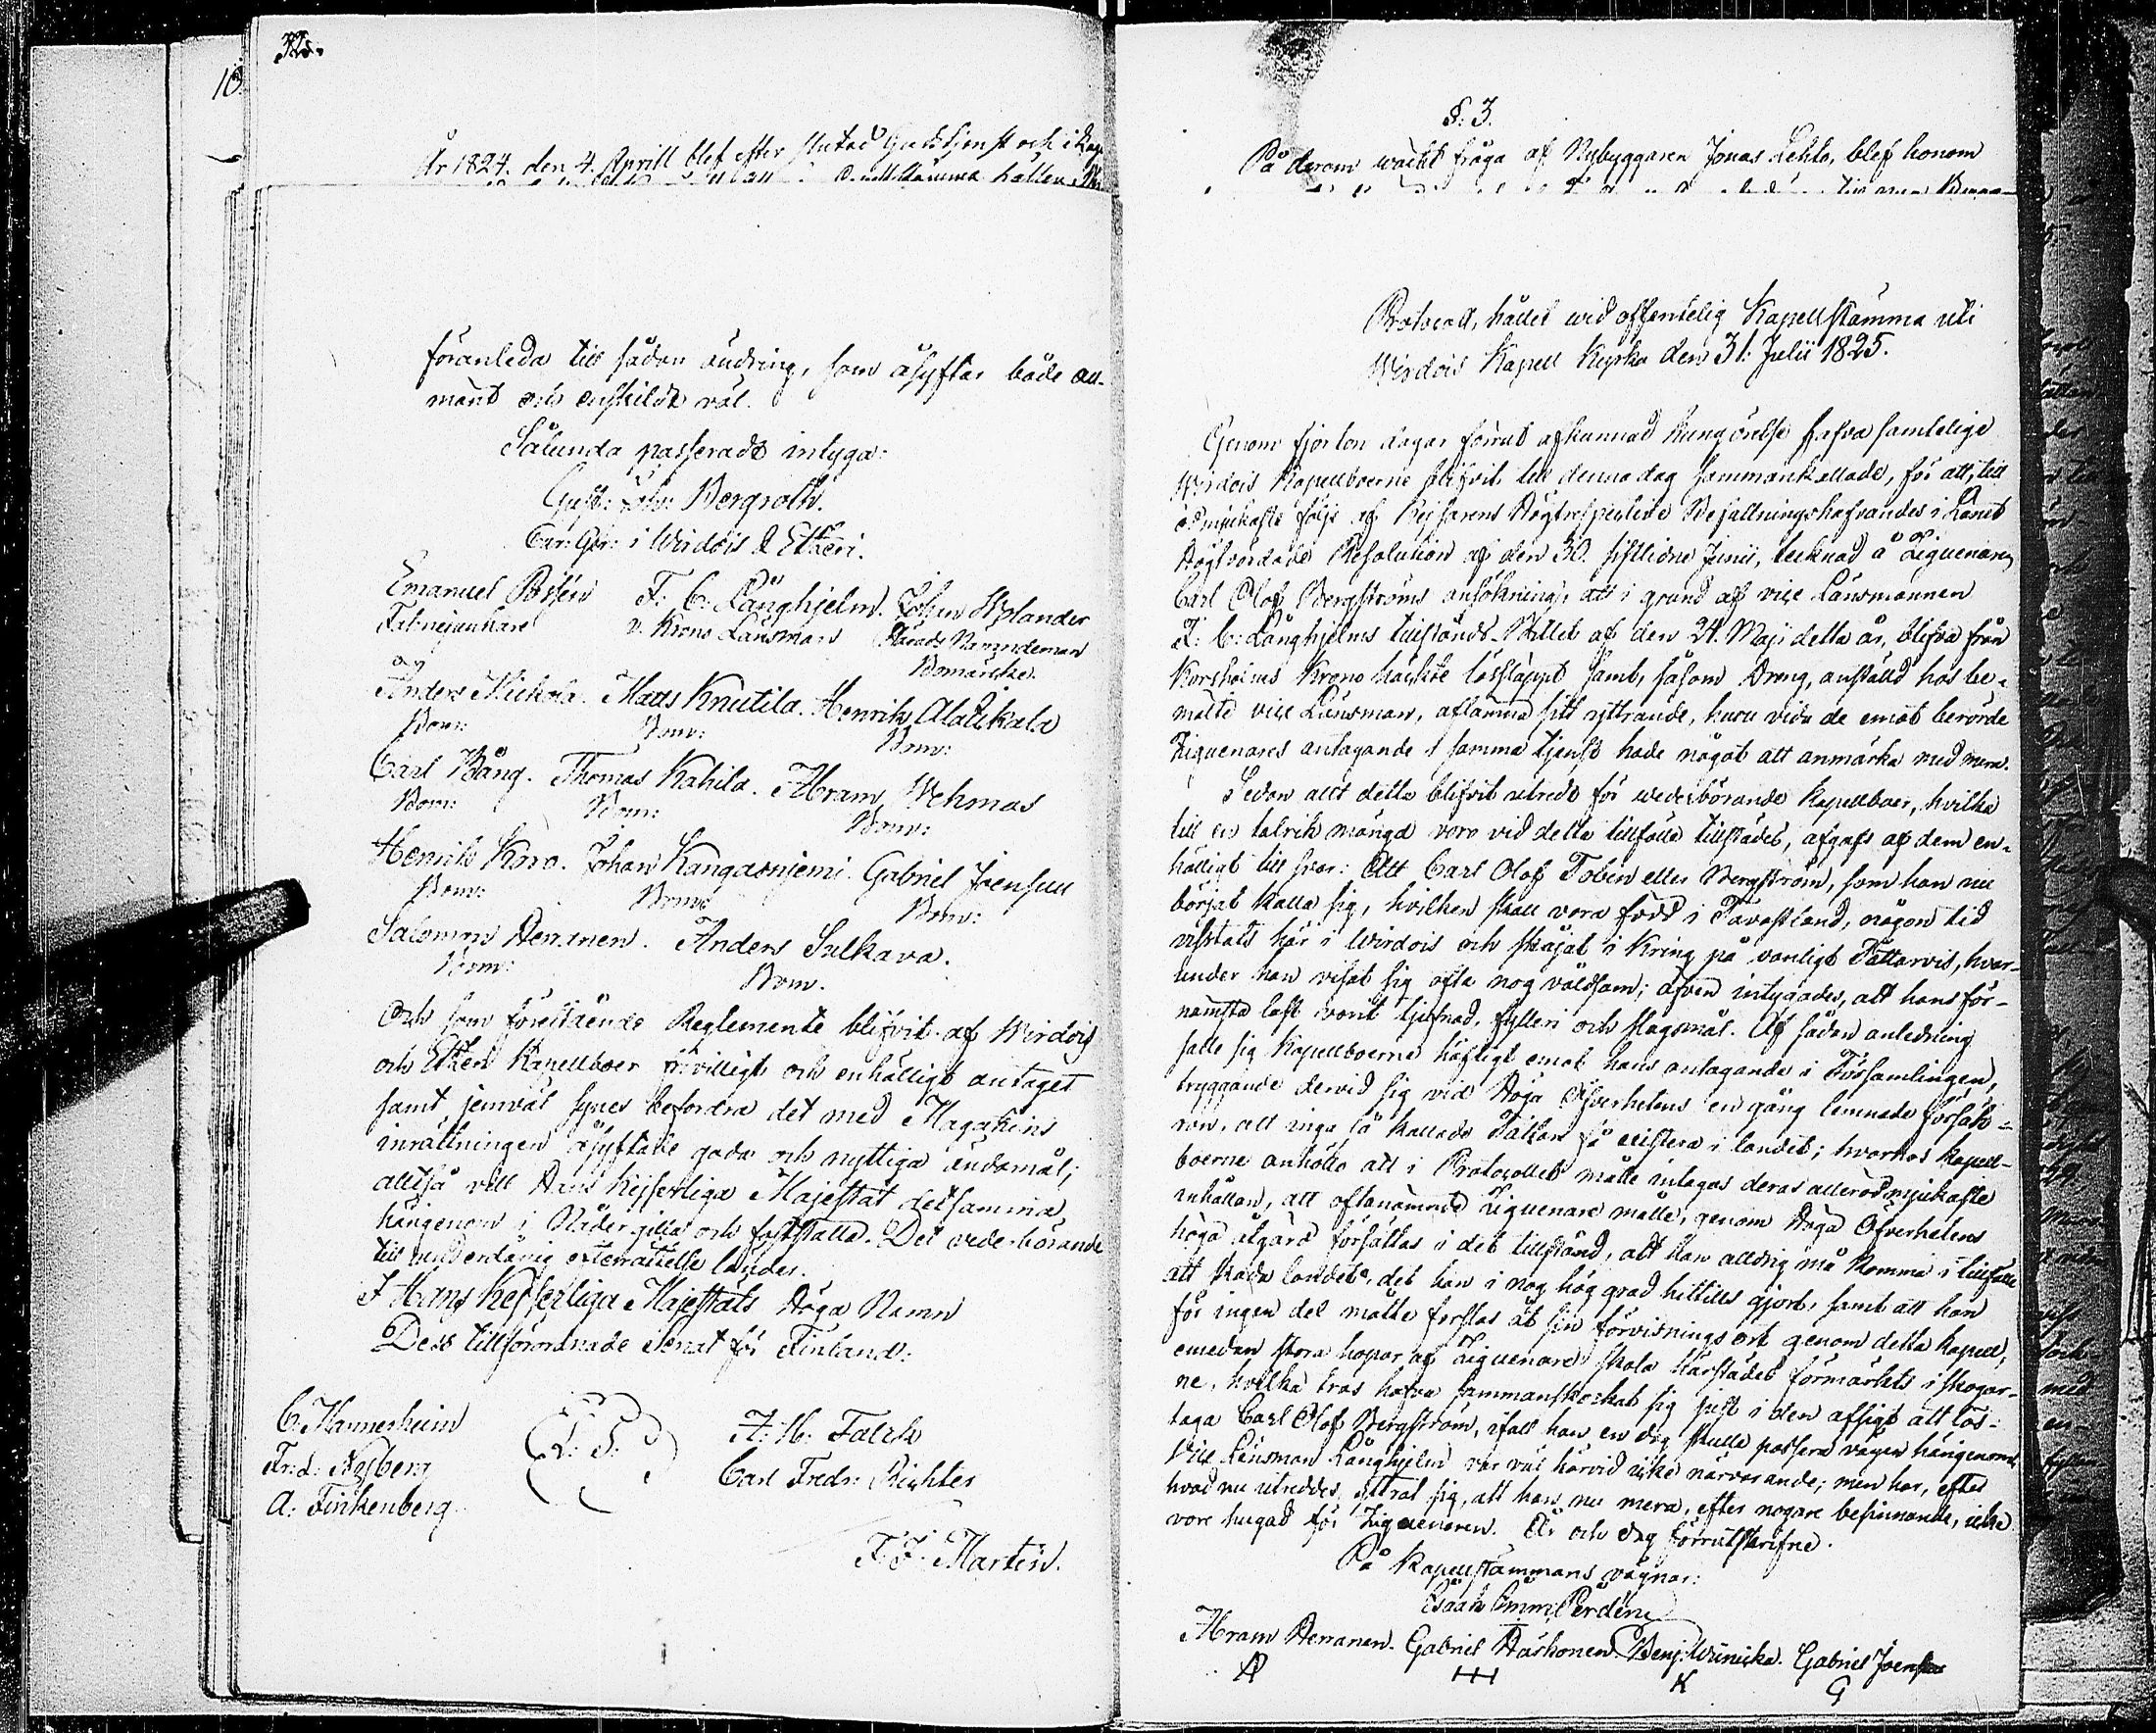 32.
10
År 1824. den 4. Aprill blef efter slutad Gudstjenst och i
föranleda till sådan ändring, som åsyftar både all-
mänt och enskildt väl.
Sålunda passeradt intyga:
Gust: Joh: Bergroth.
i Wirdois & Etseri.
Emanuel Possén F. C. Långhjelm. Johan Wylander
Fahnejunkare v. Krono Länsman Härads Nämndeman
Bomärke.
Anders Mickola. Matts Knutila. Henrik Alatikala
Bom: Bom: Bom:
Carl Bång. Thomas Kahila. Abram Wehmas
Bom: Bom: Bom:
Henrik Kuro. Johan Kangasnjemi. Gabriel Joensuu
Bom: Bom: Bom:
Salomon Herranen. Anders Sulkava.
Bom: Bom.
Och som förestående Reglemente blifvit af Wirdois
och Etseri Kapellboer frivilligt och enhälligt antaget
samt jemväl synes befordra det med Magasins
inrättningen åsyftade goda och nyttiga ändamål;
altså vill Hans Kejserliga Majestät detsamma
härigenom i Nåder gilla och fastställa. Det vederbörande
till underdånig efterrättelse länder.
I Hans Kejserliga Majestäts Höga Namn
Dess tillförordnade Senat för Finland:
C. Mannerheim L: S: A: H: Falck
Fred: Nyberg Carl Fredr: Richter
A: Finkenberg.
F: F: Martin.
§. 3.
På derom wäckt fråga af Nybyggaren Jonas Lehto, blef honom
Protocoll, hållet wid offentelig Kapellstämma uti
Wirdois Kapell Kyrka den 31. Julii 1825.
Genom fjorton dagar förrut afkunnad kungörelse hafva samtelige
Wirdois Kapellboerne blifvit till denna dag sammankallade, för att, till
ödmjukaste följe af Kejsarens Högtrespective Befallningshafvandes i Länet
Högtvördade Resolution af den 30. sistlidne Junii, tecknad å Ziguenaren
Carl Olof Bergströms ansökning, att i grund af vice Länsmannen
F: C: Långhjelms tillstånds-Attest af den 24. Maji detta år, blifva från
Korsholms Krono häckte lössläppt samt, såsom Dreng, anställd hos be-
mälte vice Länsman, aflämna sitt yttrande, huru vida de emot berörde
Ziguenares antagande i samma tjenst hade något att anmärka med mera.
Sedan allt detta blifvit utredt för wederbörande kapellboer, hvilka
till en talrik mängd voro vid detta tillfälle tillstädes, afgafs af dem en-
hälligt till svar: Att Carl Olof Tobin eller Bergström, som han nu
börjat kalla sig, hvilken skall vara född i Tavastland, någon tid
vistats här i Wirdois och strykit i Kring på vanligt Tattarvis, hvar-
under han visat sig ofta nog våldsam; äfven intygades, att hans för-
nämsta last varit tjufnad, fylleri och slagsmål. Af sådan anledning
satte sig Kapellboerne häftigt emot hans antagande i Församlingen,
tryggande dervid sig vid Höga Öfverhetens en gång lemnade försäk-
ran, att inga så kallade Tattare få existera i landet; hvarhos kapell-
boerne anhöllo att i Protocollet måtte intagas deras allerödmjukaste
anhållan, att oftanämnde Ziguenare måtte, genom Höga Öfverhetens
höga åtgärd försättas i det tillstånd, att han alldrig må komma i tillfälle
att skada landet, det han i nog hög grad hittills gjort, samt att han
för ingen del måtte forslas åt sin förvisnings ort genom detta kapell,
emedan stora hopar af Ziguenare skola härstädes förmärkts i skogar-
ne, hvilka tros hafva sammanskockat sig just i den afsigt att lös-
taga Carl Olof Bergström, ifall han en dag skulle passera vägen härigenom.
Vice Länsman Långhjelm var väl härvid icke närvarande; men har, efter
hvad nu utreddes, yttrat sig, att han nu mera, efter nogare besinnande, icke
vore hugad för Ziguenaren. År och dag förrutskrifne.
På Kapellstämmans vägnar:
Isaac Perdén
Abram Herranen. Gabriel Haskonen. Benj: Wuniska. Gabriel Joensuu
K G